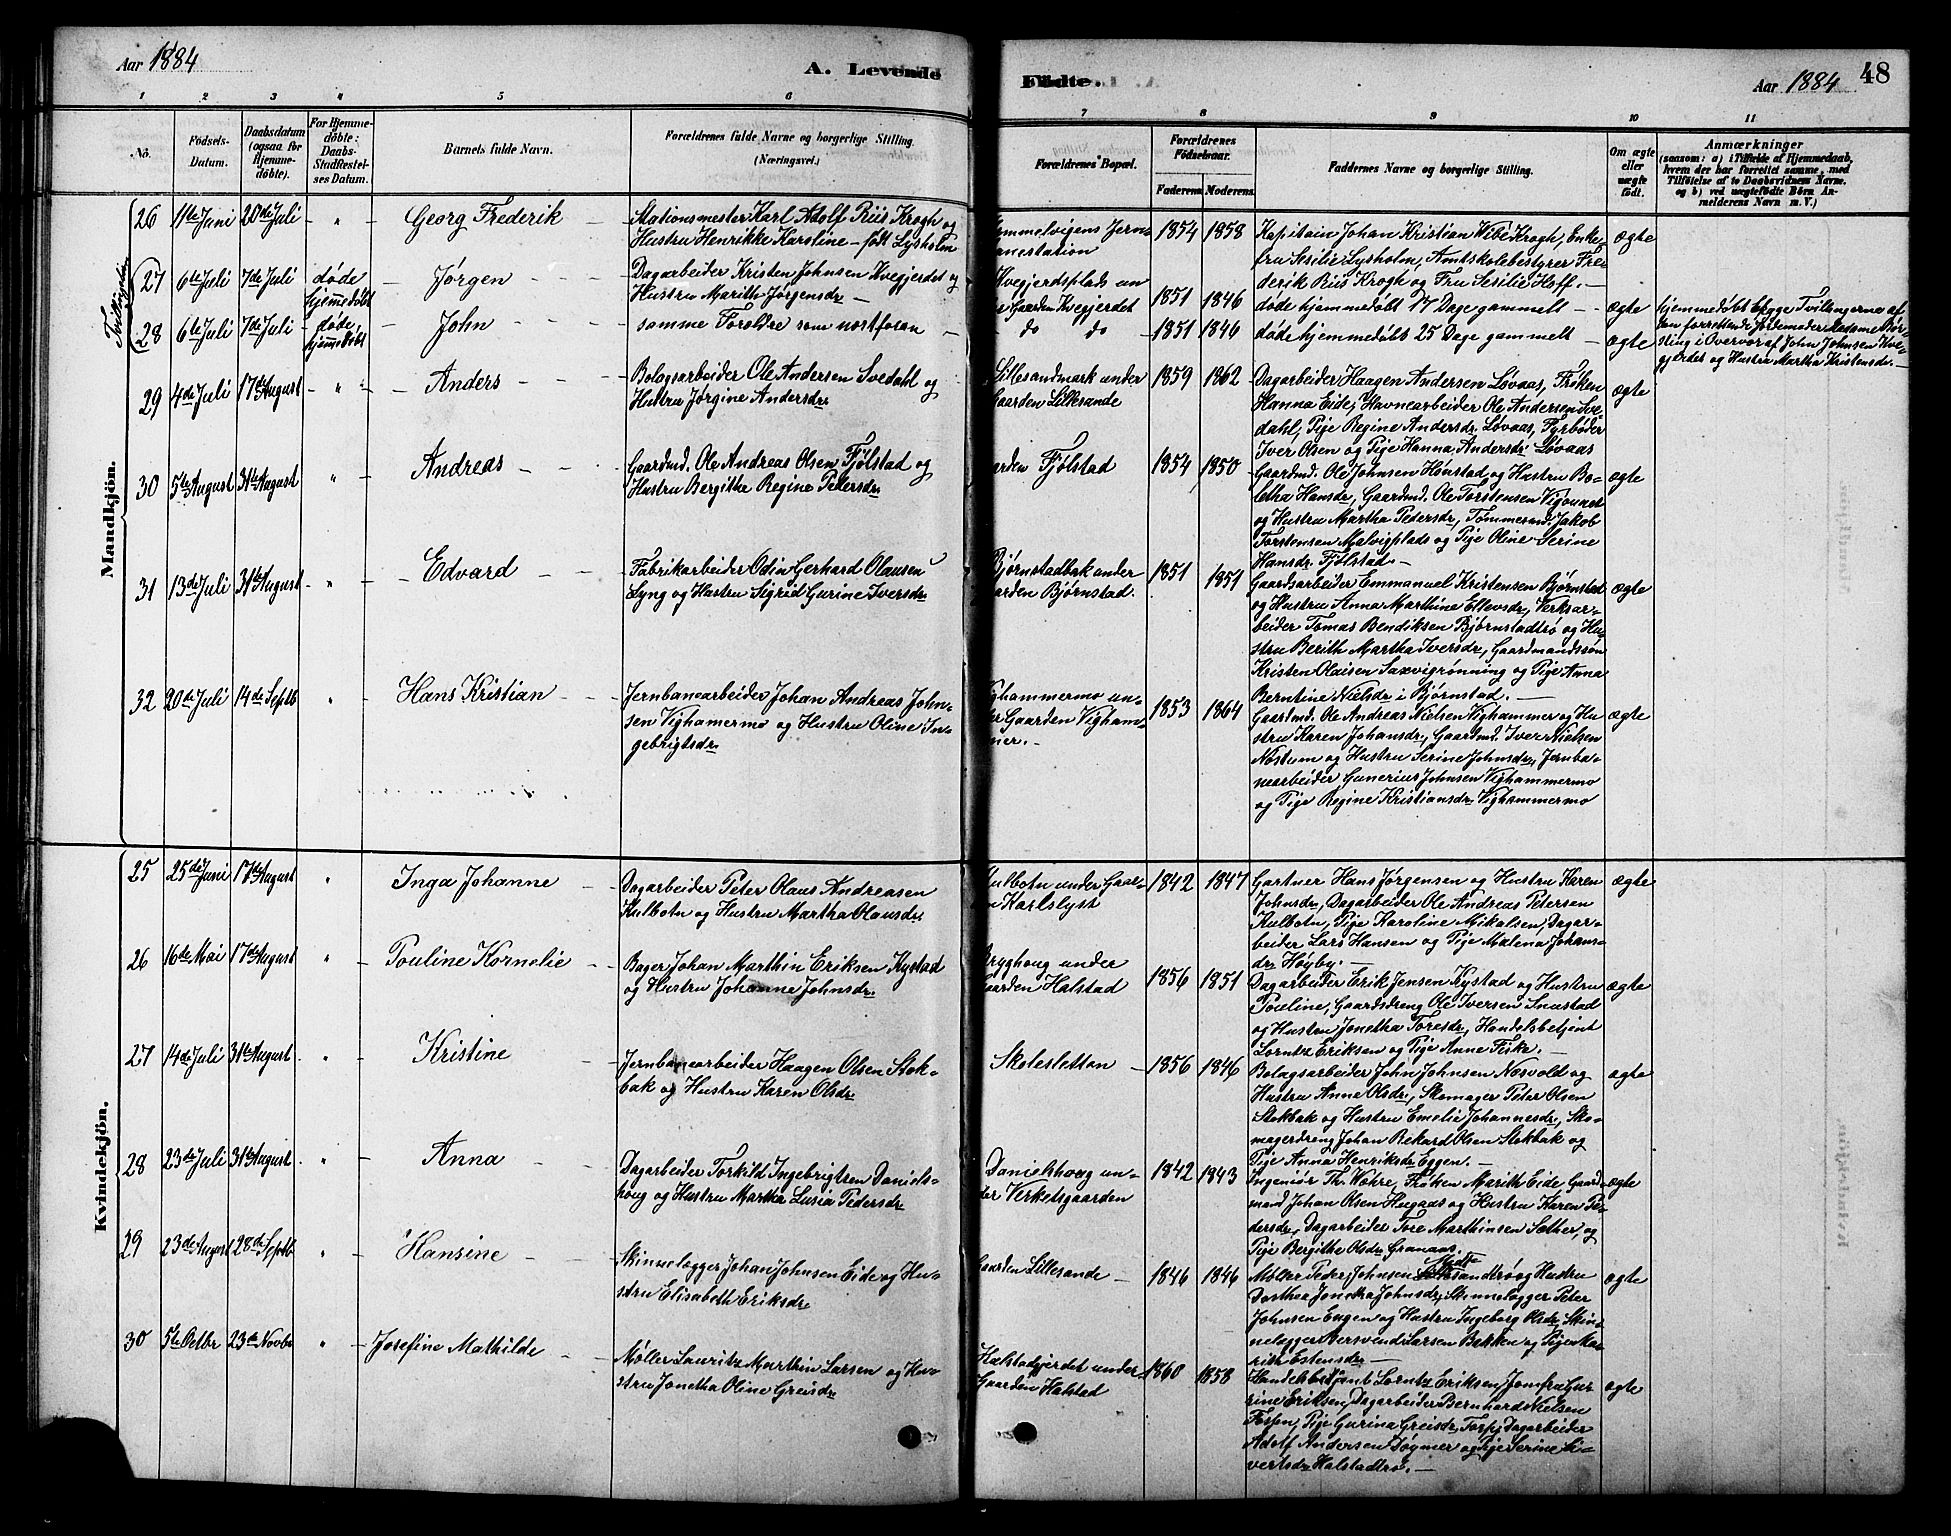 Aar 1884
A. Levende
Fødte.
Aar 1884
48
1 2 3 4 5 6 7 8 9 10 11
No.
Fødsels-
Datum.
Daabsdatum
(ogsaa for
Hjemme-
døbte).
For Hjemme-
døbte:
Daabs-
Stadfæstel-
ses Datum.
Barnets fulde Navn.
Forældrenes fulde Navne og borgerlige Stilling.
(Næringsvei.)
Forældrenes Bopæl.
Forældrenes
Fødselsaar.
Faderens. Moderens.
Faddernes Navne og borgerlige Stilling.
Om ægte
eller
uægte
født.
Anmærkninger
(saasom: a) i Tilfælde af Hjemmedaab,
hvem der har forrettet samme, med
Tilføielse af to Daabsvidners Navne,
og b) ved uægtefødte Børn An-
melderens Navn m. V.)
Mandkjön.
26 11te Juni 20de Juli " Georg Frederik
Stationsmester Karl Adolf Riis Krogh og
Hustru Henrikke Karoline – født Lysholm
Hommelvigens Jern-
banestation
1854 1858
Kapitain Johan Kristian Wibe Krogh, Enke-
fru Sesilie Lysholm, Amtskolebestyrer Fre-
derik Riis Krogh og Fru Sesilie Hoff. –
ægte
Tvillinger
27 6te Juli 7de Juli døde hjemmedøbt Jørgen
Dagarbeider Kristen Johnsen Kvegjerdet og
Hustru Marith Jørgensdr –
Kvegjerdsplads un
Gaarden Kvegjerdet
1851 1846
døde hjemmedøbt 17 Dage gammelt – ægte
28 6te Juli 7de Juli døde hjemmedøbt John
samme Foreldre som nest foran
do do 1851 1846
døde hjemmedøbt 25 Dage gammelt – ægte
hjemmedøbt begge Tvillingerne af
den forrettende Jordemoder Madame Bør-
sting i Overvær af John Johnsen Kve-
gjerdet og Hustru Martha Kristensdr –
29 4de Juli 17de August " Anders
Bolagsarbeider Ole Andersen Svedahl og
Hustru Jørgine Andersdr
Lillesandmark under
Gaarden Lillesande
1859 1862
Dagarbeider Haagen Andersen Løvaas, Frøken
Hanna Eide, Havnearbeider Ole Andersen Sve-
dahl, Pige Regine Andersdr Løvaas, Fyrbøder
Iver Olsen og Pige Hanna Andersdr Løvaas
ægte
30 5te August 31te August " Andreas
Gaardmd. Ole Andreas Olsen Fjølstad og
Hustru Bergithe Regine Pedersdr
Gaarden Fjølstad
1854 1850
Gaardmd. Ole Johnsen Hønstad og Hustru Bo-
letha Hansdr, Gaardmd. Ole Torstensen
og Hustru Martha Pedersdr, Tømmermd. Jakob
Torstensen Malvigplads og Pige Oline Serine
Hansdr Fjølstad –
ægte
31 13de Juli 31te August " Edvard
Fabrikarbeider Odin Gerhard Olausen
Lyng og Hustru Sigrid Gurine Iversdr
Bjørnstadbak under
Gaarden Bjørnstad.
1851 1851
Gaardsarbeider Emmanuel Kristensen Bjørnstad
og Hustru Anna Marthine Ellevsdr, Verksar-
beider Tomas Bendiksen Bjørnstadtrø og Hu-
stru Berith Martha Iversdr, Gaardmandssøn
Kristen Olaisen Saxvigrønning og Pige Anna
Berntine Nielsdr i Bjørnstad. –
ægte
32 20de Juli 14de Septb " Hans Kristian
Jernbanearbeider Johan Andreas John-
sen Vighamermo og Hustru Oline In-
gebrigtsdr
Vighammermo un-
der Gaarden Vigham-
mer. –
1853 1864
Gaardmd. Ole Andreas Nielsen Vighammer og Hu
stru Karen Johansdr, Gaardmd. Iver Nielsen
Nostum og Hustru Serine Johnsdr, Jernba-
nearbeider Gunerius Johnsen Vighammermo
og Pige Regine Kristiansdr Vighammermo
ægte
Kvindekjön.
25 25de Juni 17de August " Inga Johanne
Dagarbeider Peter Olaus Andreasen
Kulbotn og Hustru Martha Olausdr
Kulbotn under Gaar-
den Karlslyst
1842 1847
Gartner Hans Jørgensen og Hustru Karen
Johnsdr, Dagarbeider Ole Andreas Petersen
Kulbotn, Pige Karoline Mikalsen, Dagar-
beider Lars Hansen og Pige Malena Johans-
dr Høyby. –
ægte
26 16de Mai 17de August " Pouline Kornelie
Bager Johan Marthin Eriksen Kystad
og Hustru Johanne Johnsdr.
Bryghoug under
Gaarden Halstad
1856 1851
Dagarbeider Erik Jensen Kystad og Hustru
Pouline, Gaardsdreng Ole Iversen Snustad
og Hustru Jonetha Toresdr, Handelsbetjent
Lorntz Eriksen og Pige Anne Fiske. –
ægte
27 14de Juli 31te August " Kristine
Jernbanearbeider Haagen Olsen Stok-
bak og Hustru Karen Olsdr
Skolesletten
1856 1846
Bolagsarbeider John Johnsen Nesvold og
Hustru Anne Olsdr, Skomager Peter Olsen
Stokbak og Hustru Emelie Johannesdr, Sko-
magerdreng Johan Rekard Olsen Stokbak og
Pige Anna Henriksdr Eggen. –
ægte
28 23de Juli 31te August " Anna
Dagarbeider Torkild Ingebrigtsen Daniels-
houg og Hustru Martha Lusia Pedersdr
Danielshoug un-
der Verketsgaarden
1842 1843
Ingeniør Th. Wøhre, Frøken Marith Eide Gaard-
mand Johan Olsen Haugaas og Hustru Karen Pe-
dersdr, Dagarbeider Tore Marthinsen Sæther, og
Pige Bergithe Olsdr Granaas.
ægte
29 23de August 28de Septb " Hansine
Skinnelægger Johan Johnsen Eide og Hu-
stru Elisabeth Eriksdr
Gaarden Lillesande –
1846 1846
Møller Peder Johnsen sandtrø og Hustru
Dorthea Jonetha Johnsdr, Skinnelægger Peter
Johnsen Engen og Hustru Ingeborg Olsdr, Skin-
nelægger Bersvend Larsen Bakken og Pige Ma-
rith Estensdr –
ægte
30 5te Octbr 23de Novbr " Josefine Mathilde
Møller Lauritz Marthin Larsen og Hu-
stru Jonetha Oline Greisdr
Halstadgjerdet under
Gaarden Halstad
1860 1858
Handelsbetjent Lorntz Eriksen, Jomfru Gu-
rine Eriksen, Dagarbeider Bernhard Nielsen
Forsen, Pige Gurina Greisdr Torp, Dagarbeider
Adolf Andersen Døgmer og Pige Serine Si-
vertsdr Halstadtrø. –
ægte